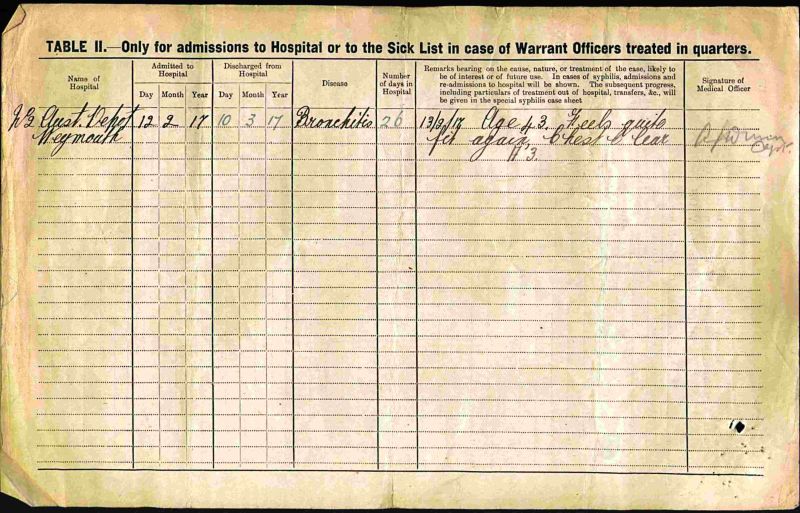 TABLE II.—Only for admissions to Hospital or to the Sick List in case of Warrant Officers treated in quarters.
Name of Hospital
Admitted to Hospital
Day Month Year
Discharged from Hospital
Day Month Year
Disease
Number of days in Hospital
Remarks bearing on the cause, nature, or treatment of the case, likely to
be of interest or of future use. In cases of syphilis, admissions and
re-admissions to hospital will be shown. The subsequent progress,
including particulars of treatment out of hospital, transfers, &c., will
be given in the special syphilis case sheet
Signature of Medical Officer
Aust. Depot 12 2 17 10 3 17 Bronchitis 26 13/3/17 Age 43. Feels quite
Weymouth fit again, Chest Clear
Capt.